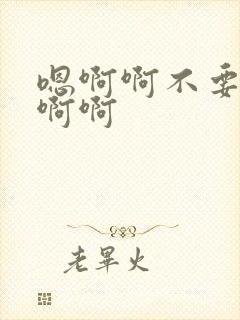 嗯啊啊不要
啊啊
老畢火